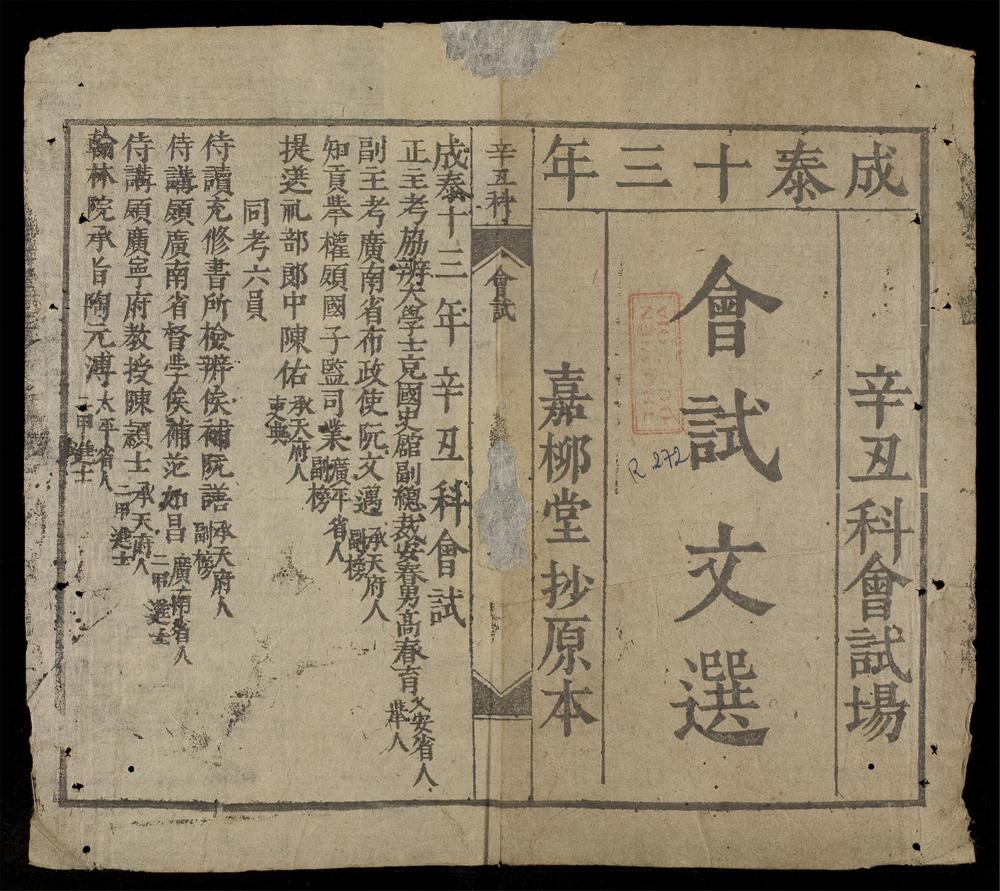 成泰十三年
辛丑科會試場
會試文選
嘉柳堂抄原本
R. 272
辛丑科
會試
成泰十三年辛丑科會試
正主考協辦大學士充國史館副總裁安春男高春育乂安省人舉人
副主考廣南省布政使阮文邁承天府人副榜
知貢舉權領國子監司業廣平省人副榜
提選礼部郎中陳佑承天府人
同考六員
侍讀充修書所檢辨侯補阮譱承天府人副榜
侍講領廣南省督學侯補范如昌廣南省人二甲進士
侍講領廣寧府教授陳潁士承天府人二甲進士
翰林院承旨陶元溥太平省人二甲進士